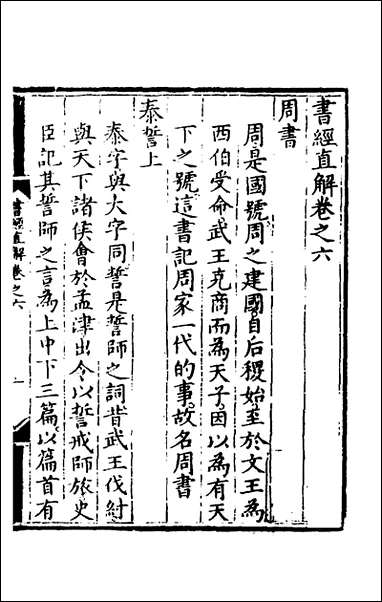 書經直解卷之六
周書
周是國號周之建國自后稷始至於文王為
西伯受命武王克商而為天子因以為有天
下之號這書記周家一代的事故名周書
泰誓上
泰字與大字同誓是誓師之詞昔武王伐紂
與天下諸侯會於孟津出令以誓戒師旅史
臣記其誓師之言為上中下三篇以篇首有
書經直解卷之六
一